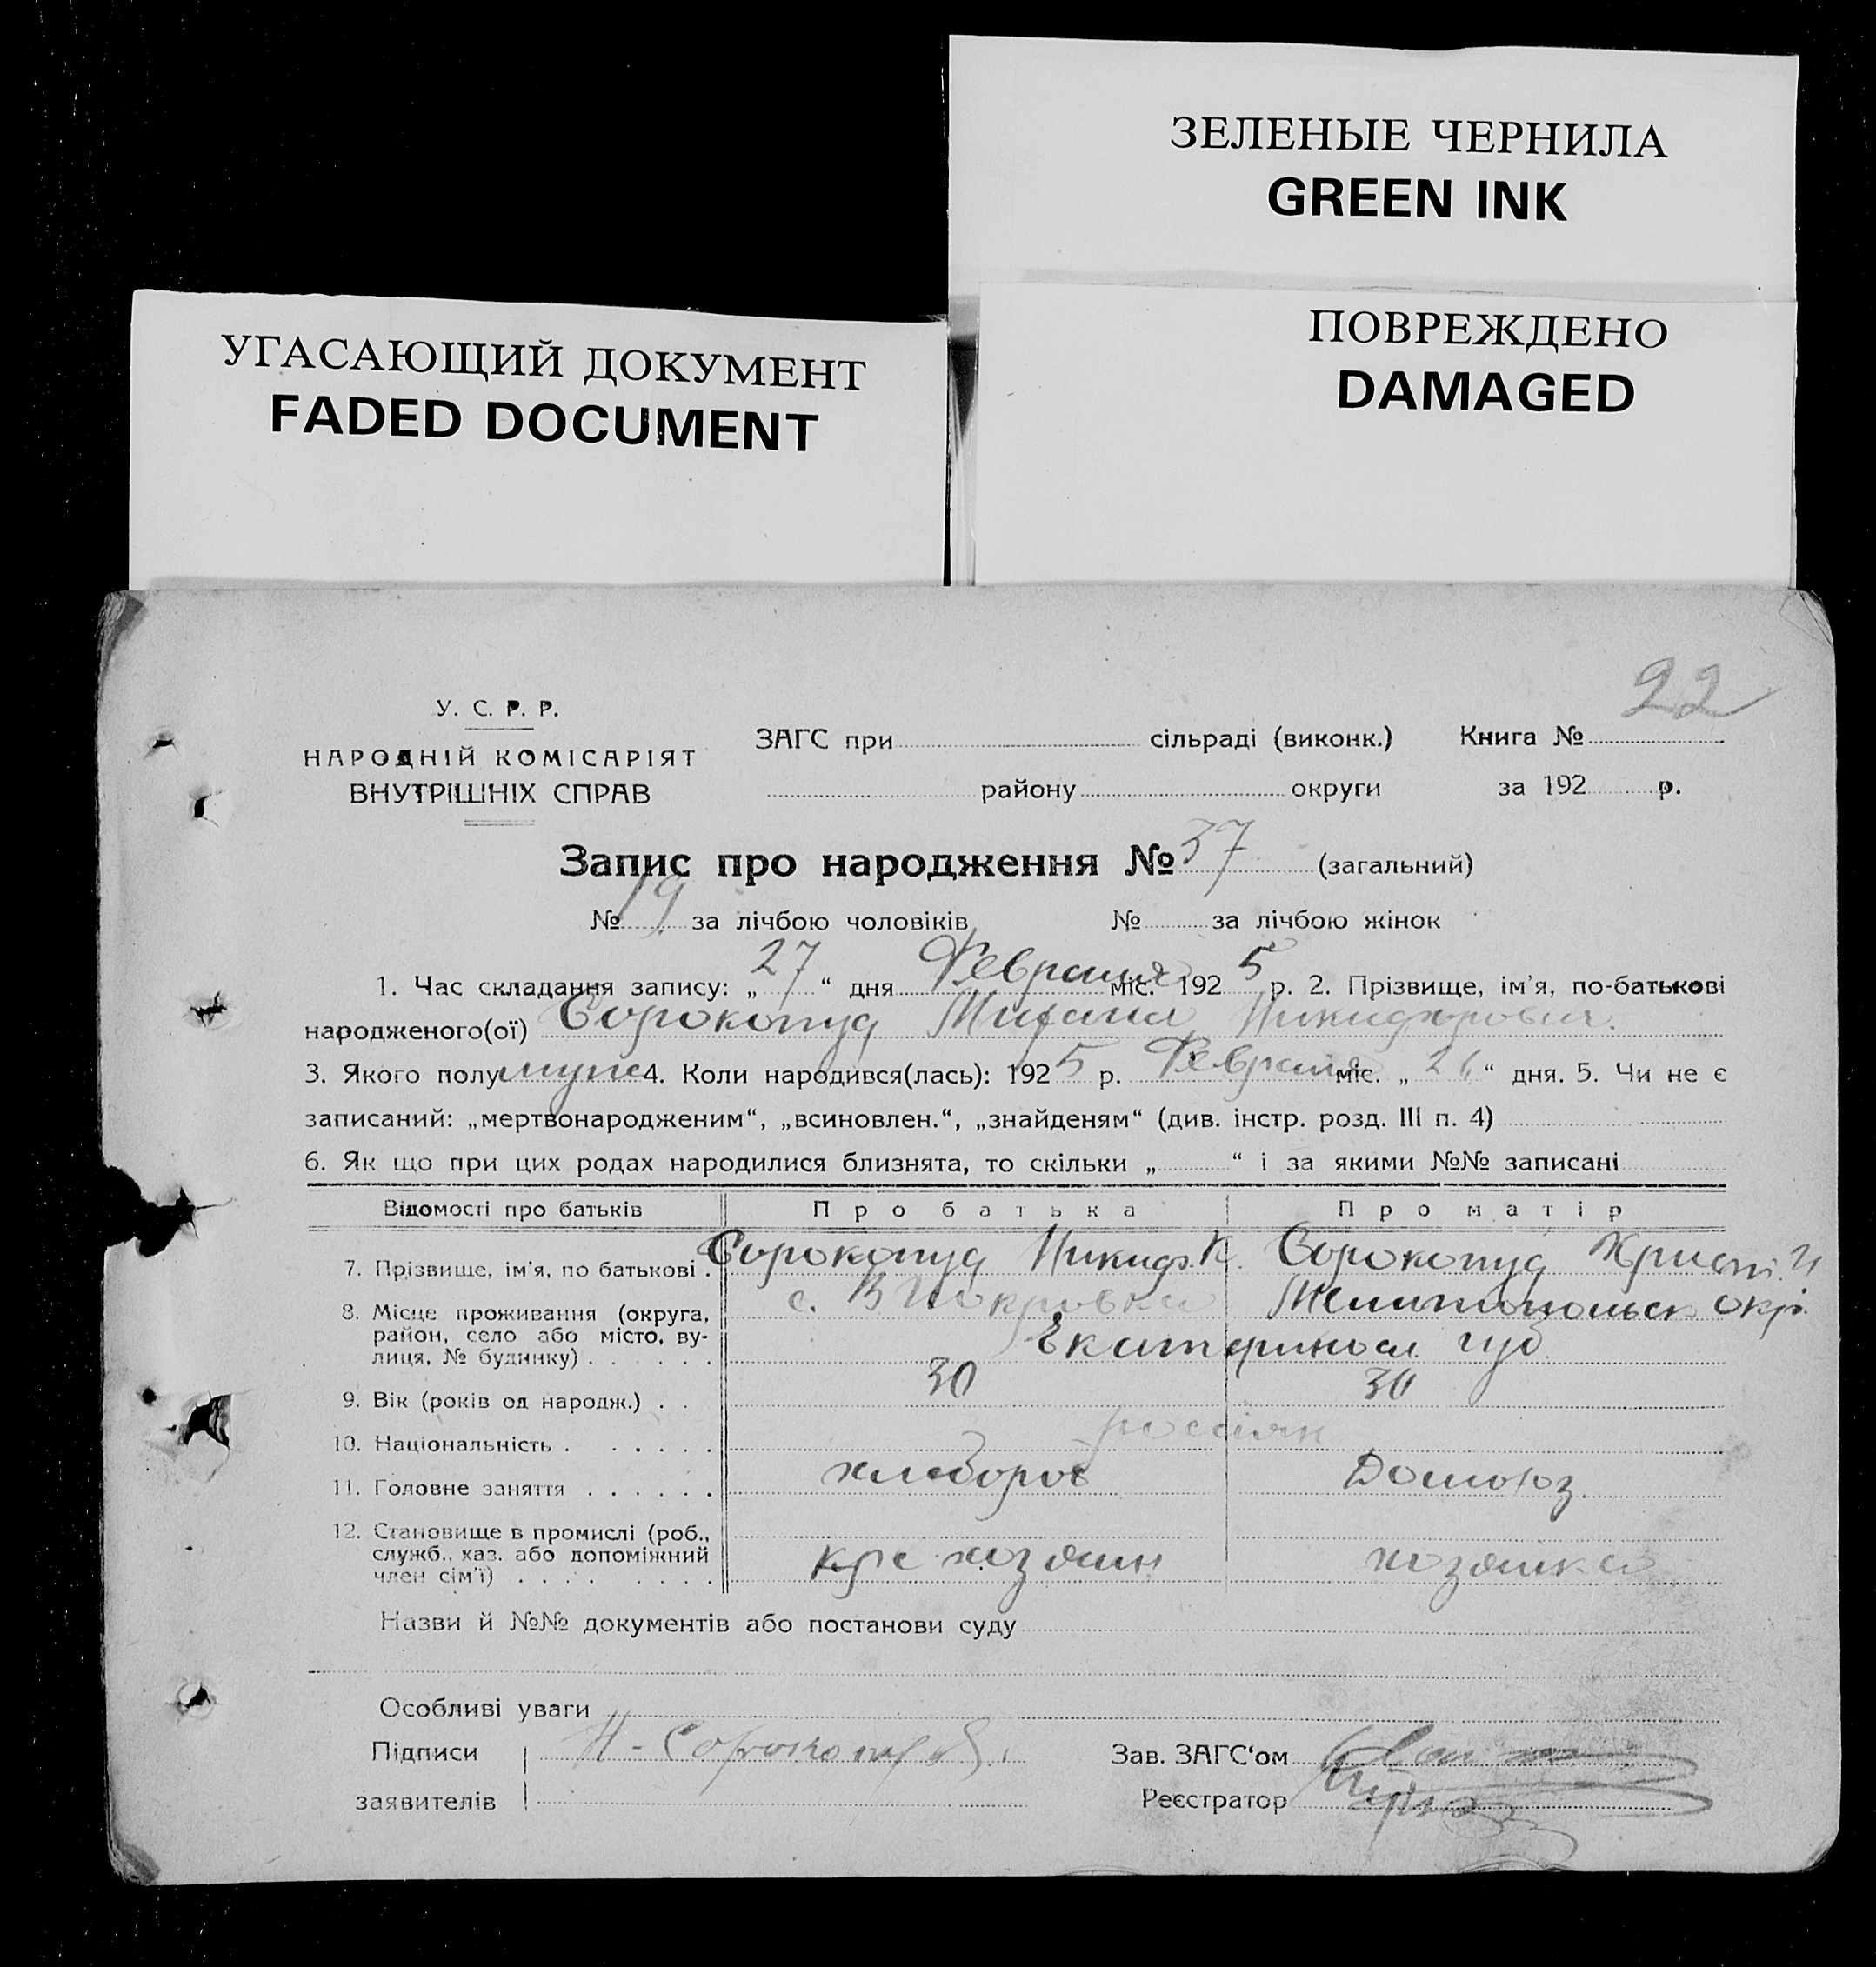 ЗЕЛЕНЫЕ ЧЕРНИЛА
GREEN INK
ПОВРЕЖДЕНО
DAMAGED
УГАСАЮЩИЙ ДОКУМЕНТ
FADED DOCUMENT
22
У. С. Р. Р.
НАРОДНІЙ КОМІСАРІЯТ
ВНУТРІШНІХ СПРАВ
ЗАГС при сільраді (виконк.) Книга №
району округи за 192 р.
Запис про народження № 37 (загальний)
№ 19 за лічбою чоловіків № за лічбою жінок
1. Час складання запису: „27“ дня Февраля міс. 1925 р. 2. Прізвище, ім'я, по-батькові
народженого(ої) Сорокопуд Михаил Никифорович
3. Якого полу муж 4. Коли народився(лась): 1925 р. Февраля міс. „ “ дня. 5. Чи не є
записаний: „мертвонародженим“, „всиновлен.“, „знайденям“ (див. інстр. розд. III п. 4)
6. Як що при цих родах народилися близнята, то скільки „ “ і за якими №№ записані
Відомості про батьків Про батька Про матір
7. Прізвище, ім'я, по батькові . Сорокопуд Никиф. К. Сорокопуд Христ. И
8. Місце проживання (округа, с. В Покровка Мелитопольск окр.
район, село або місто, ву-
лиця, № будинку) . . . . . . Екатериносл. губ
9. Вік (років од народж.) . . 30 30
10. Національність . . . . . . россіян
11. Головне заняття . . . . . . хлебороб Домохоз.
12. Становище в промислі (роб.,
служб., хаз. або допоміжний кре хозяин хозяйка
член сім'ї) . . . . . . . .
Назви й №№ документів або постанови суду
Особливі уваги
Підписи Н-Сорокопуд Зав. ЗАГС‘ом
заявителів Реєстратор